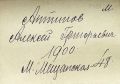 М.
Антипов
Алексей Григорьевич
1900
М. Мещанская 48